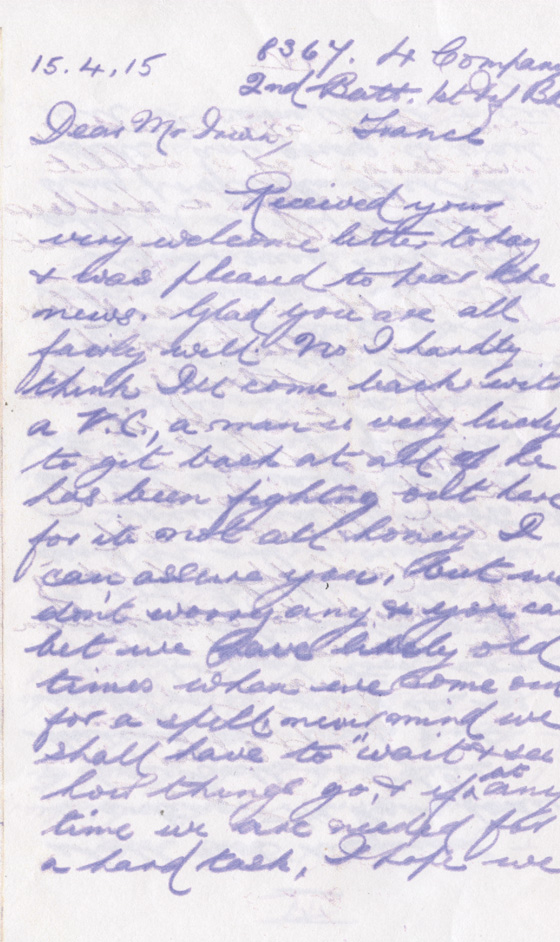 15.4.15
8367. 4 Company
2nd Batt.
Dear Mr Irwin, France
Received your
very welcome letter today
& was pleased to hear the
news. Glad you are all
fairly well. No I hardly
think I'll come back wit
a V.C., a man is very lucky
to get back at all if he
has been fighting out here
for its not all honey I
can assure you, But we
don't worry any & you ca
bet we have lively old
times when we come out
for a spell, never mind we
shall have to "wait & see
how things go, & if at any
time we are needed for
a hard task, I hope we